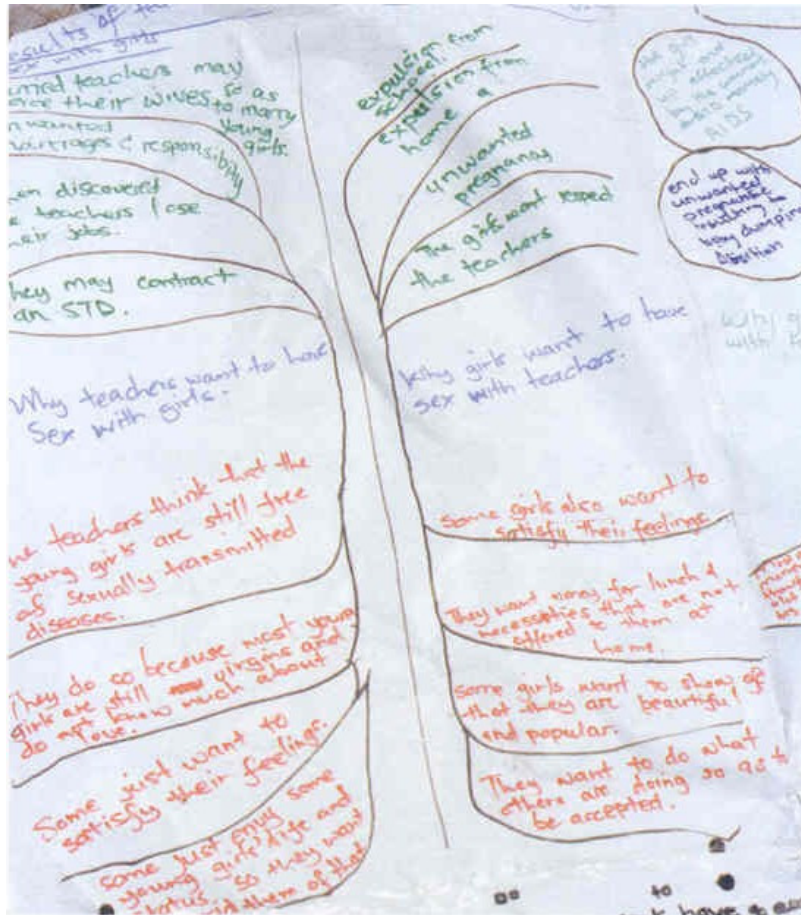 results of
sex with girls
teachers may
their wives so as
to marry
young
girls.
unwanted
marriages & responsibility
when discovered
teachers lose
their jobs.
They may contract
an STD.
Why teachers want to have
Sex with girls.
teachers think that the
young girls are still free
of sexually transmitted
diseases.
They do so because most young
girls are still virgins and
do not know much about
love.
Some just want to
satisfy their feelings.
some just enjoy some
young girls' life and
status so they want
them of that
expulsion from
school.
expulsion from
home
unwanted
pregnancy
The girls want respect
the teachers
Why girls want to have
sex with teachers.
some girls also want to
satisfy their feelings
They want money for lunch &
necessities that are not
offered to them at
home.
some girls want to show off
that they are beautiful
and popular.
They want to do what
others are doing so as to
be accepted.
the girl
might end
up
AIDS
end up with
unwanted
pregnancy
baby dumping
Why
with
to
have a